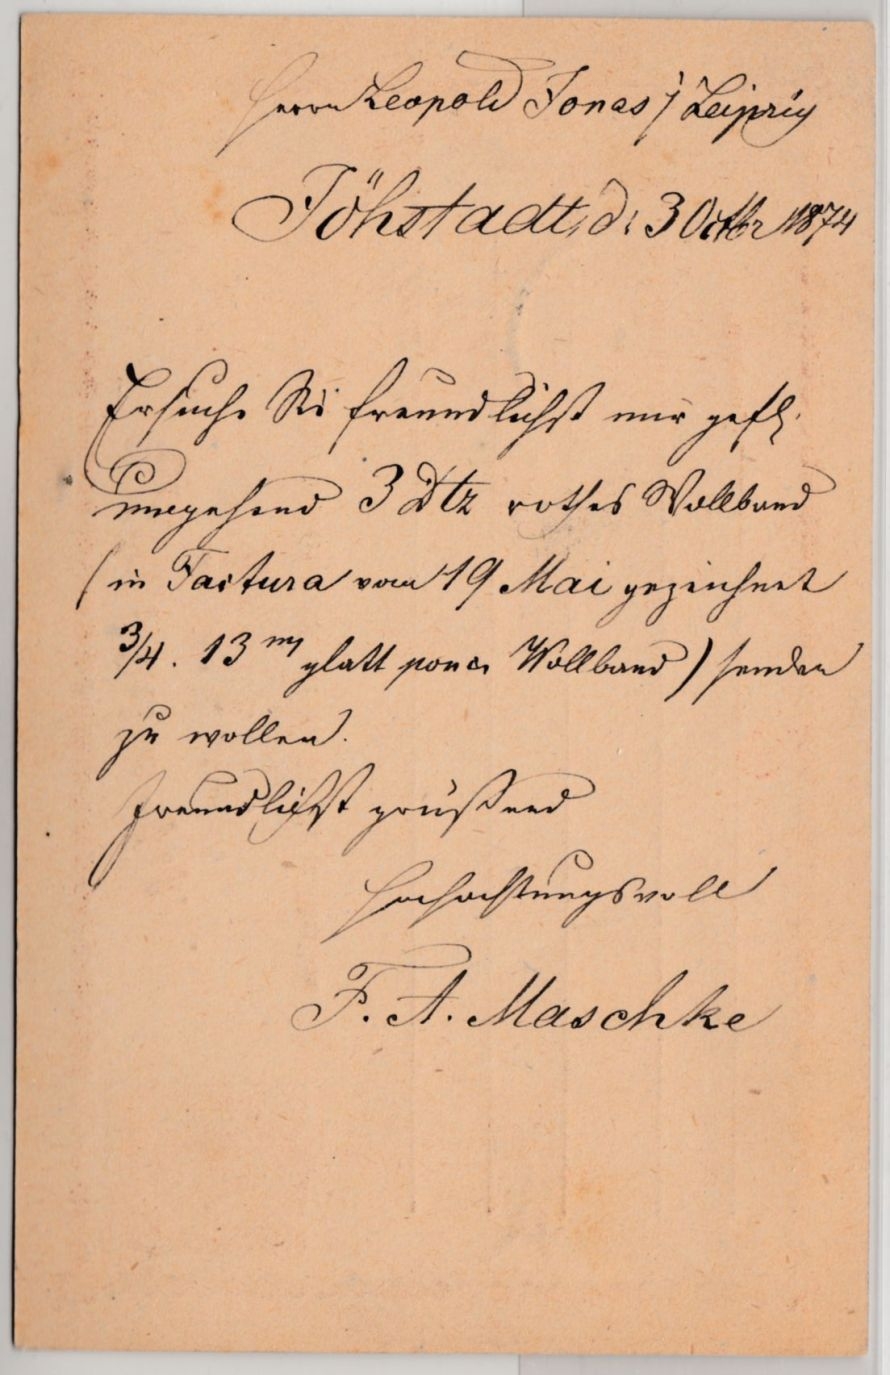 Herrn Leopold Jonas / Leipzig
Jöhstadt, d: 3 Octbr 1874
Ersuche Sie freundlichst mir gefl.
umgehend 3 Dtz rothes Wollband
(in Factura vom 19 Mai gezeichnet
3/4. 13 m/ glatt ponc. Wollband) senden
zu wollen.
Freundlichst grüßend
Hochachtungsvoll
F. A. Maschke